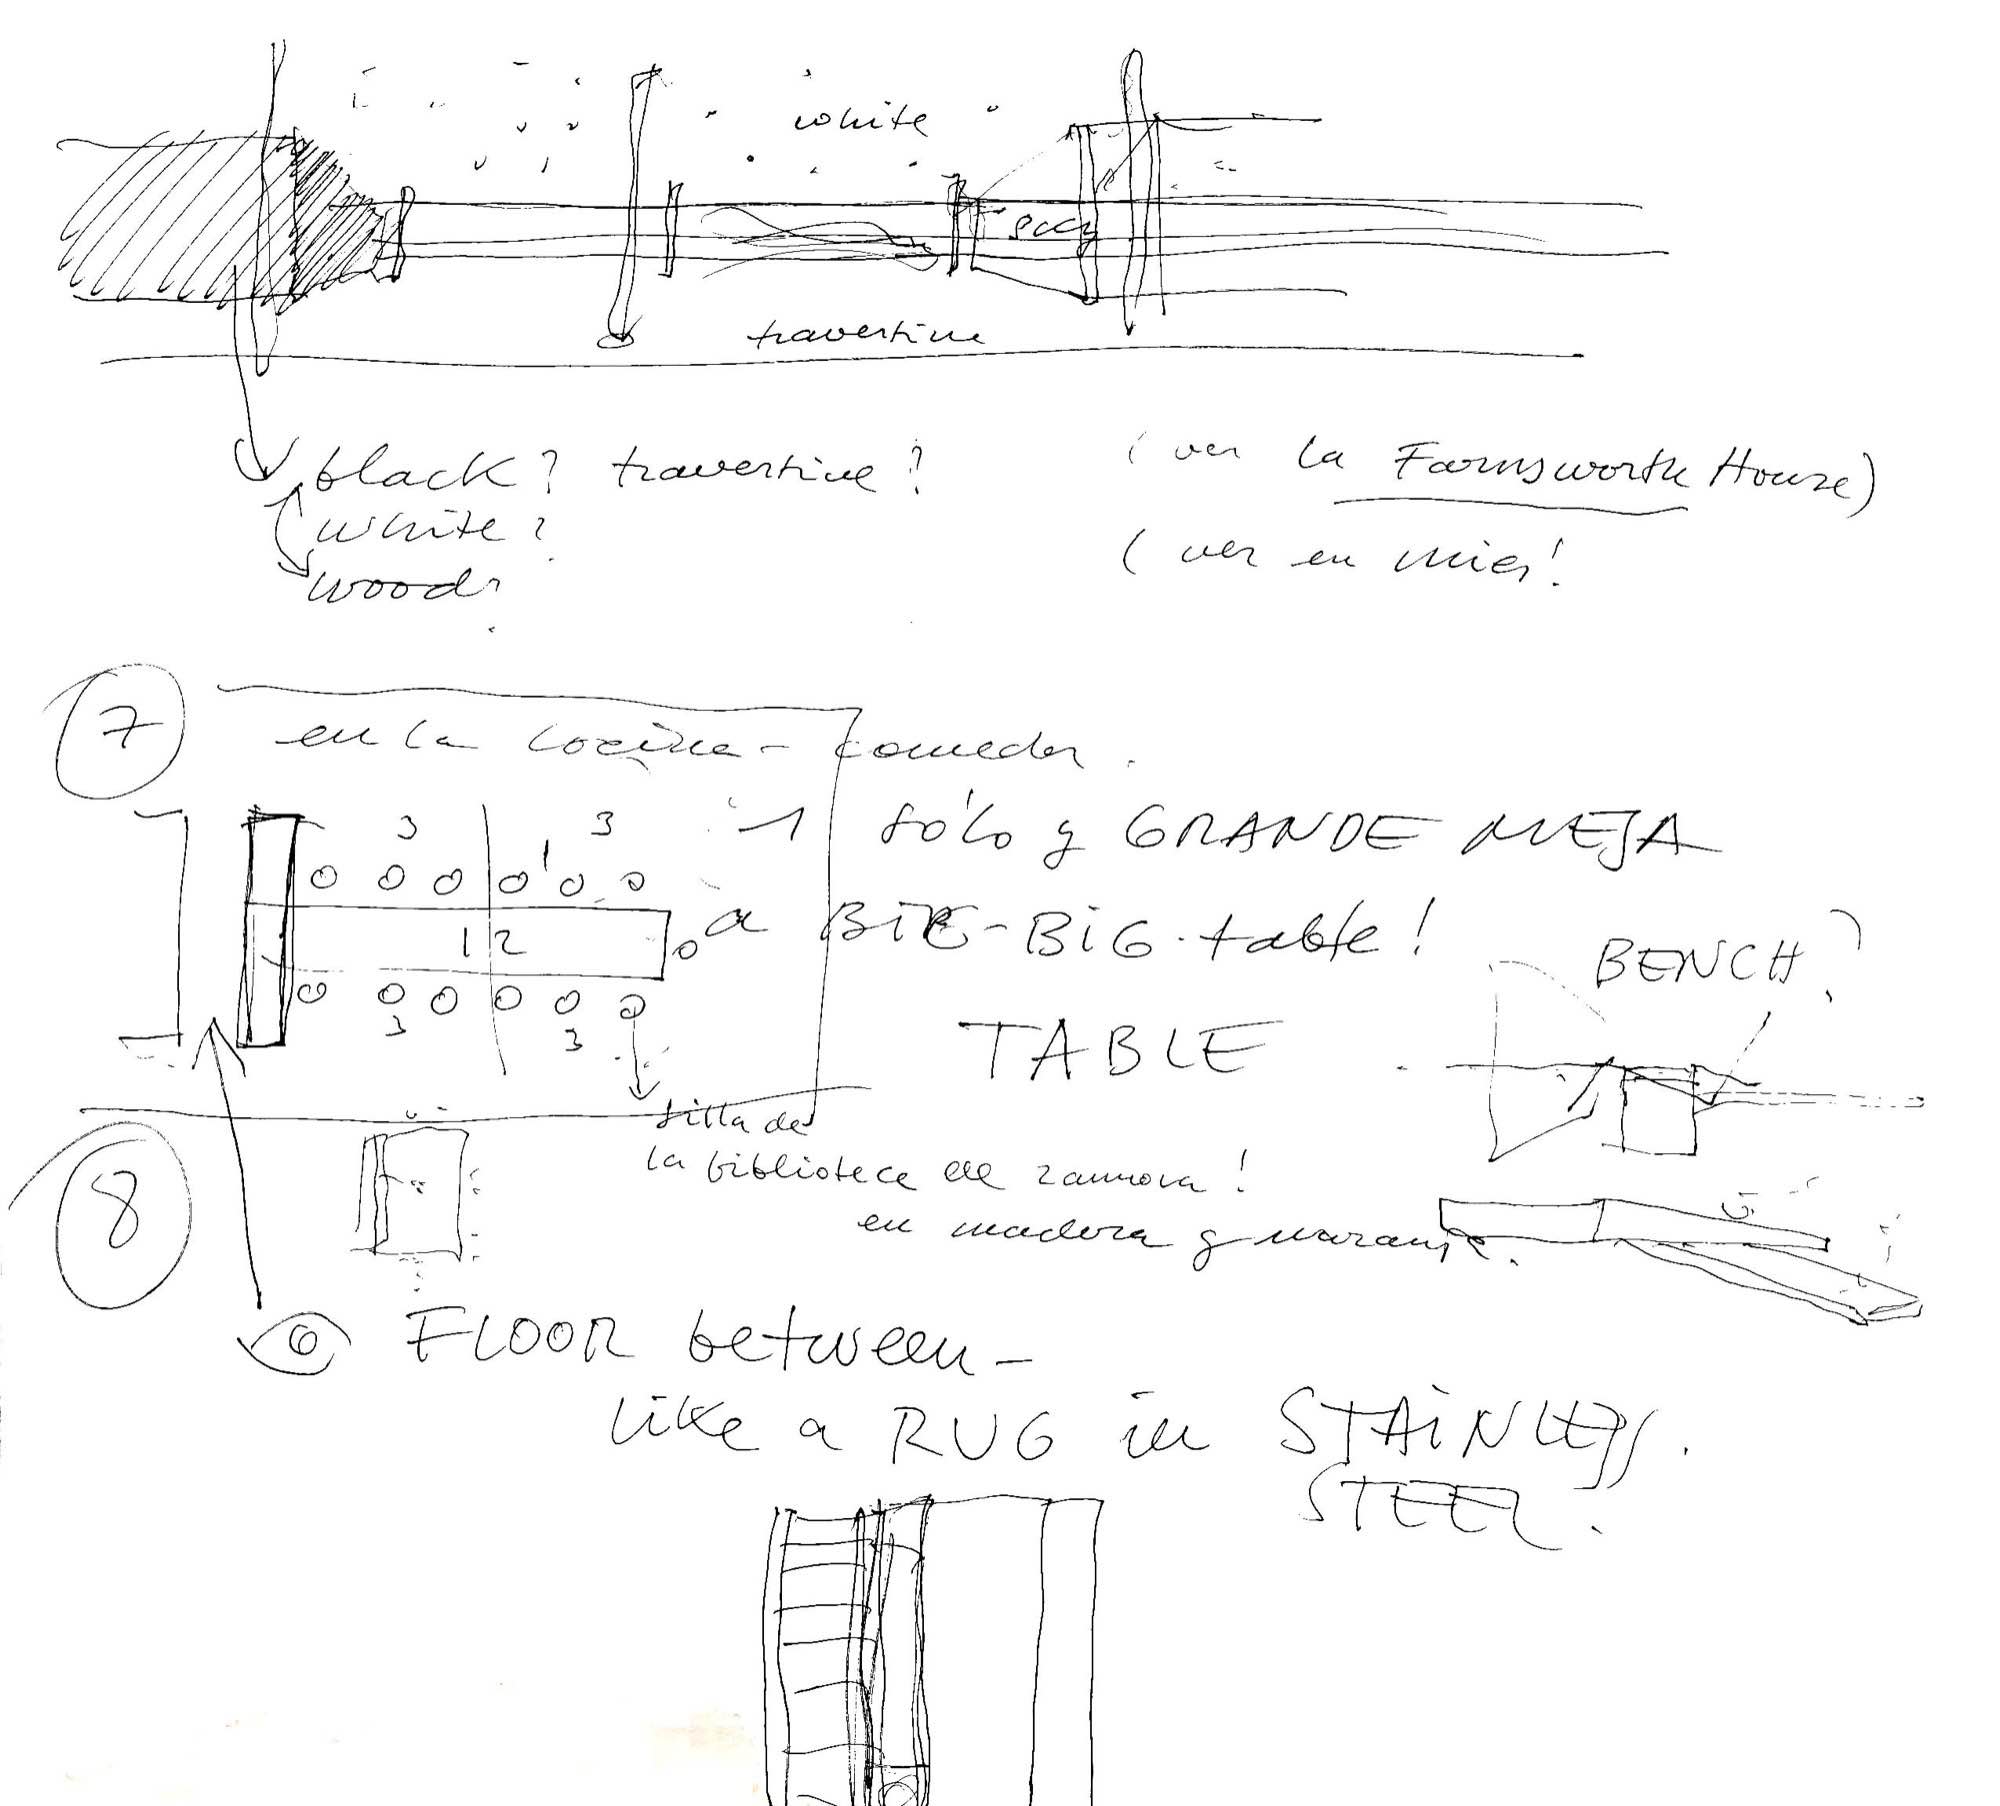 white
travertine
black? travertine?
white?
wood
(ver la Farnsworth House)
(ver en mies!
7
en la cocina-comedor.
3 3
1 sólo y GRANDE MESA
12
a BiG-BiG-table!
BENCH?
3 3
TABLE
silla de
8
la biblioteca de zamora!
en madera y naranja.
FLOOR between-
like a RUG in STAiNLESS.
STEEL.